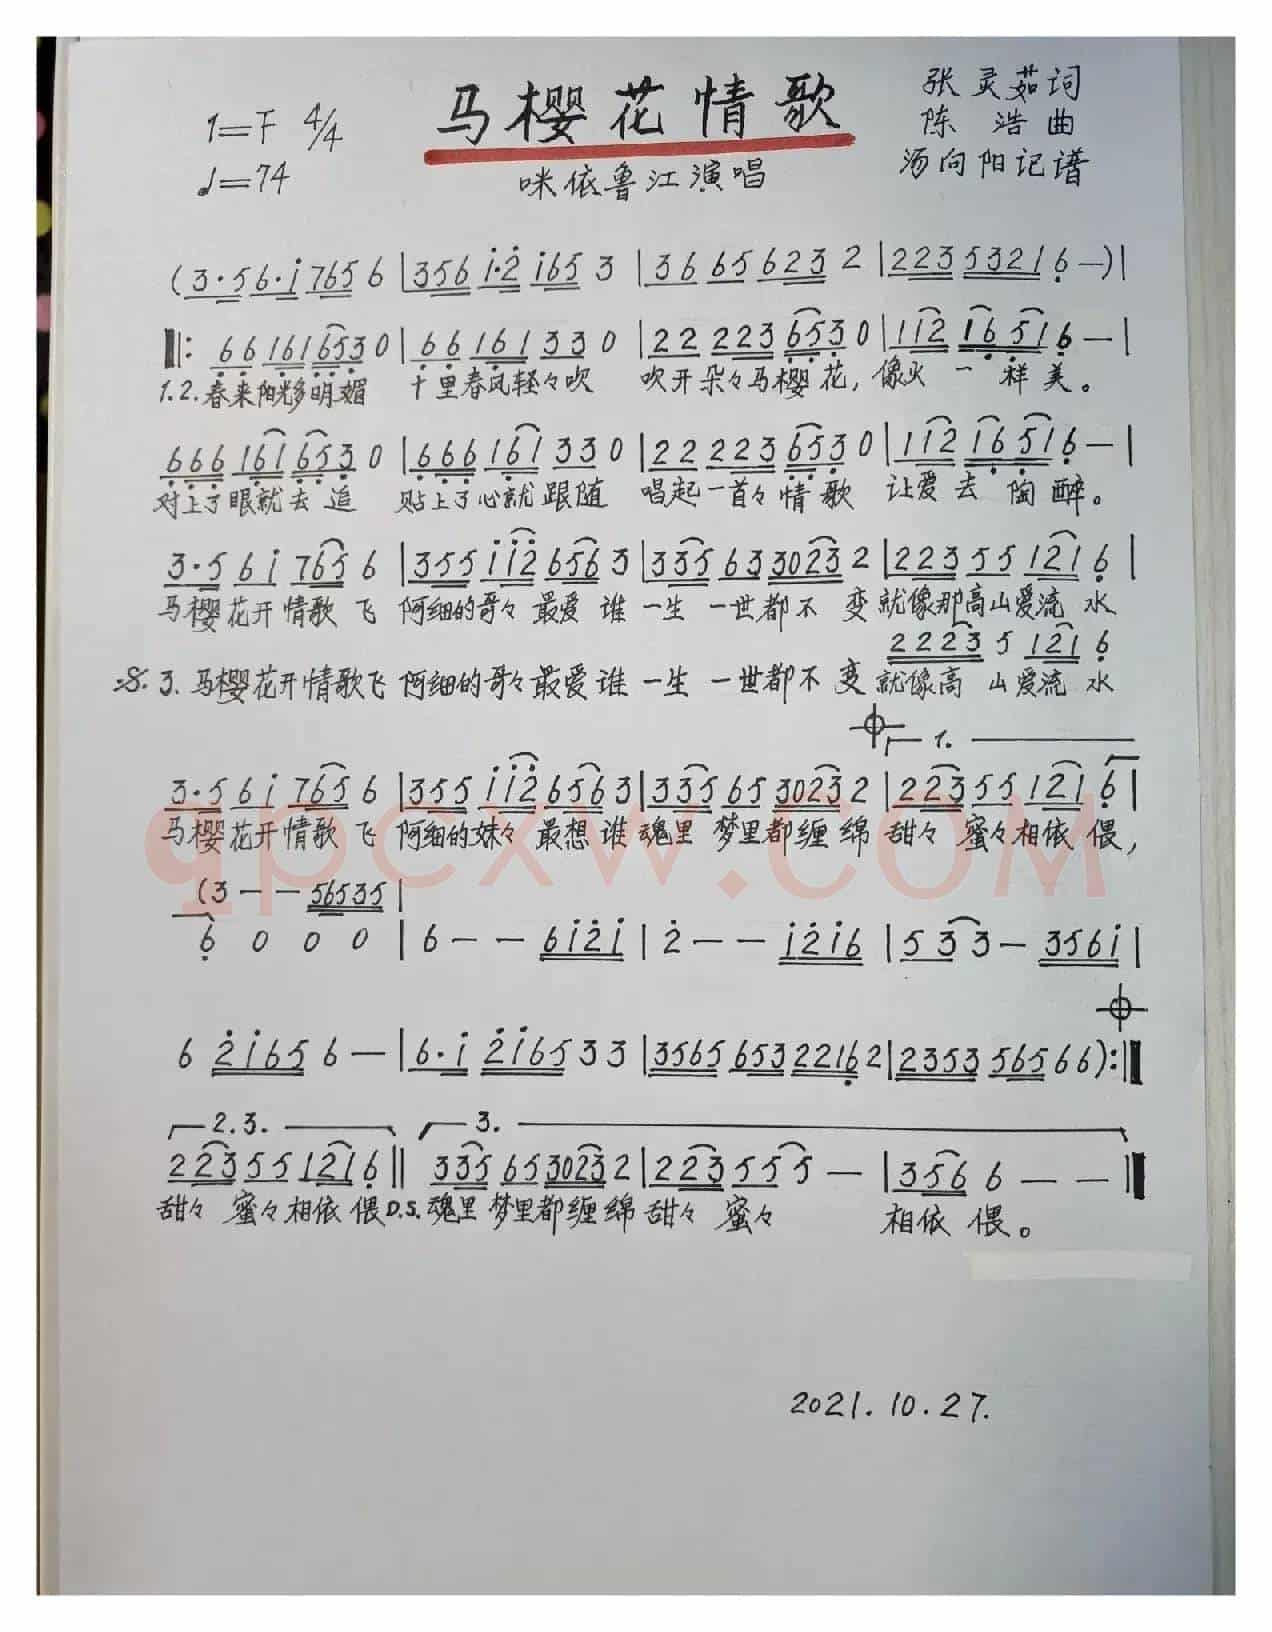 马樱花情歌
1=F 4/4
♩=74
张灵茹词
陈浩曲
汤向阳记谱
咪依鲁江演唱
(3·5 6·i 765 6 | 356 i·2 i65 3 | 36 65 623 2 | 223 5321 6 —) |
‖: 66 161 653 0 | 66 161 33 0 | 22 223 653 0 | 112 16 51 6 — |
1.2.春来阳光多明媚 十里春风轻々吹 吹开朵々马樱花,像火一样美。
666 161 653 0 | 666 161 33 0 | 22 223 653 0 | 112 16 51 6 — |
对上了眼就去追 贴上了心就跟随 唱起一首々情歌 让爱去陶醉。
3·5 6i 765 6 | 355 ii2 656 3 | 335 63 3023 2 | 223 55 121 6 |
马樱花开情歌飞 阿细的哥々最爱谁 一生一世都不变 就像那高山爱流水
2223 5 121 6
3.马樱花开情歌飞 阿细的哥々最爱谁 一生一世都不变 就像高山爱流水
1.
3·5 6i 765 6 | 355 ii2 656 3 | 335 65 3023 2 | 223 55 121 6 |
马樱花开情歌飞 阿细的妹々最想谁 魂里梦里都缠绵 甜々蜜々相依偎,
qpcxw.com
(3 — — 56535 |
6 0 0 0 | 6 — — 6i2i | 2 — — i2i6 | 53 3 — 356i |
6 2i65 6 — | 6·i 2i65 3 3 | 3565 653 2216 2 | 2353 565 66) :‖
2.3. 3.
223 55 121 6 ‖ 335 65 3023 2 | 223 55 5 — | 356 6 — — ‖
甜々蜜々相依偎 D.S.魂里梦里都缠绵 甜々蜜々 相依偎。
2021.10.27.